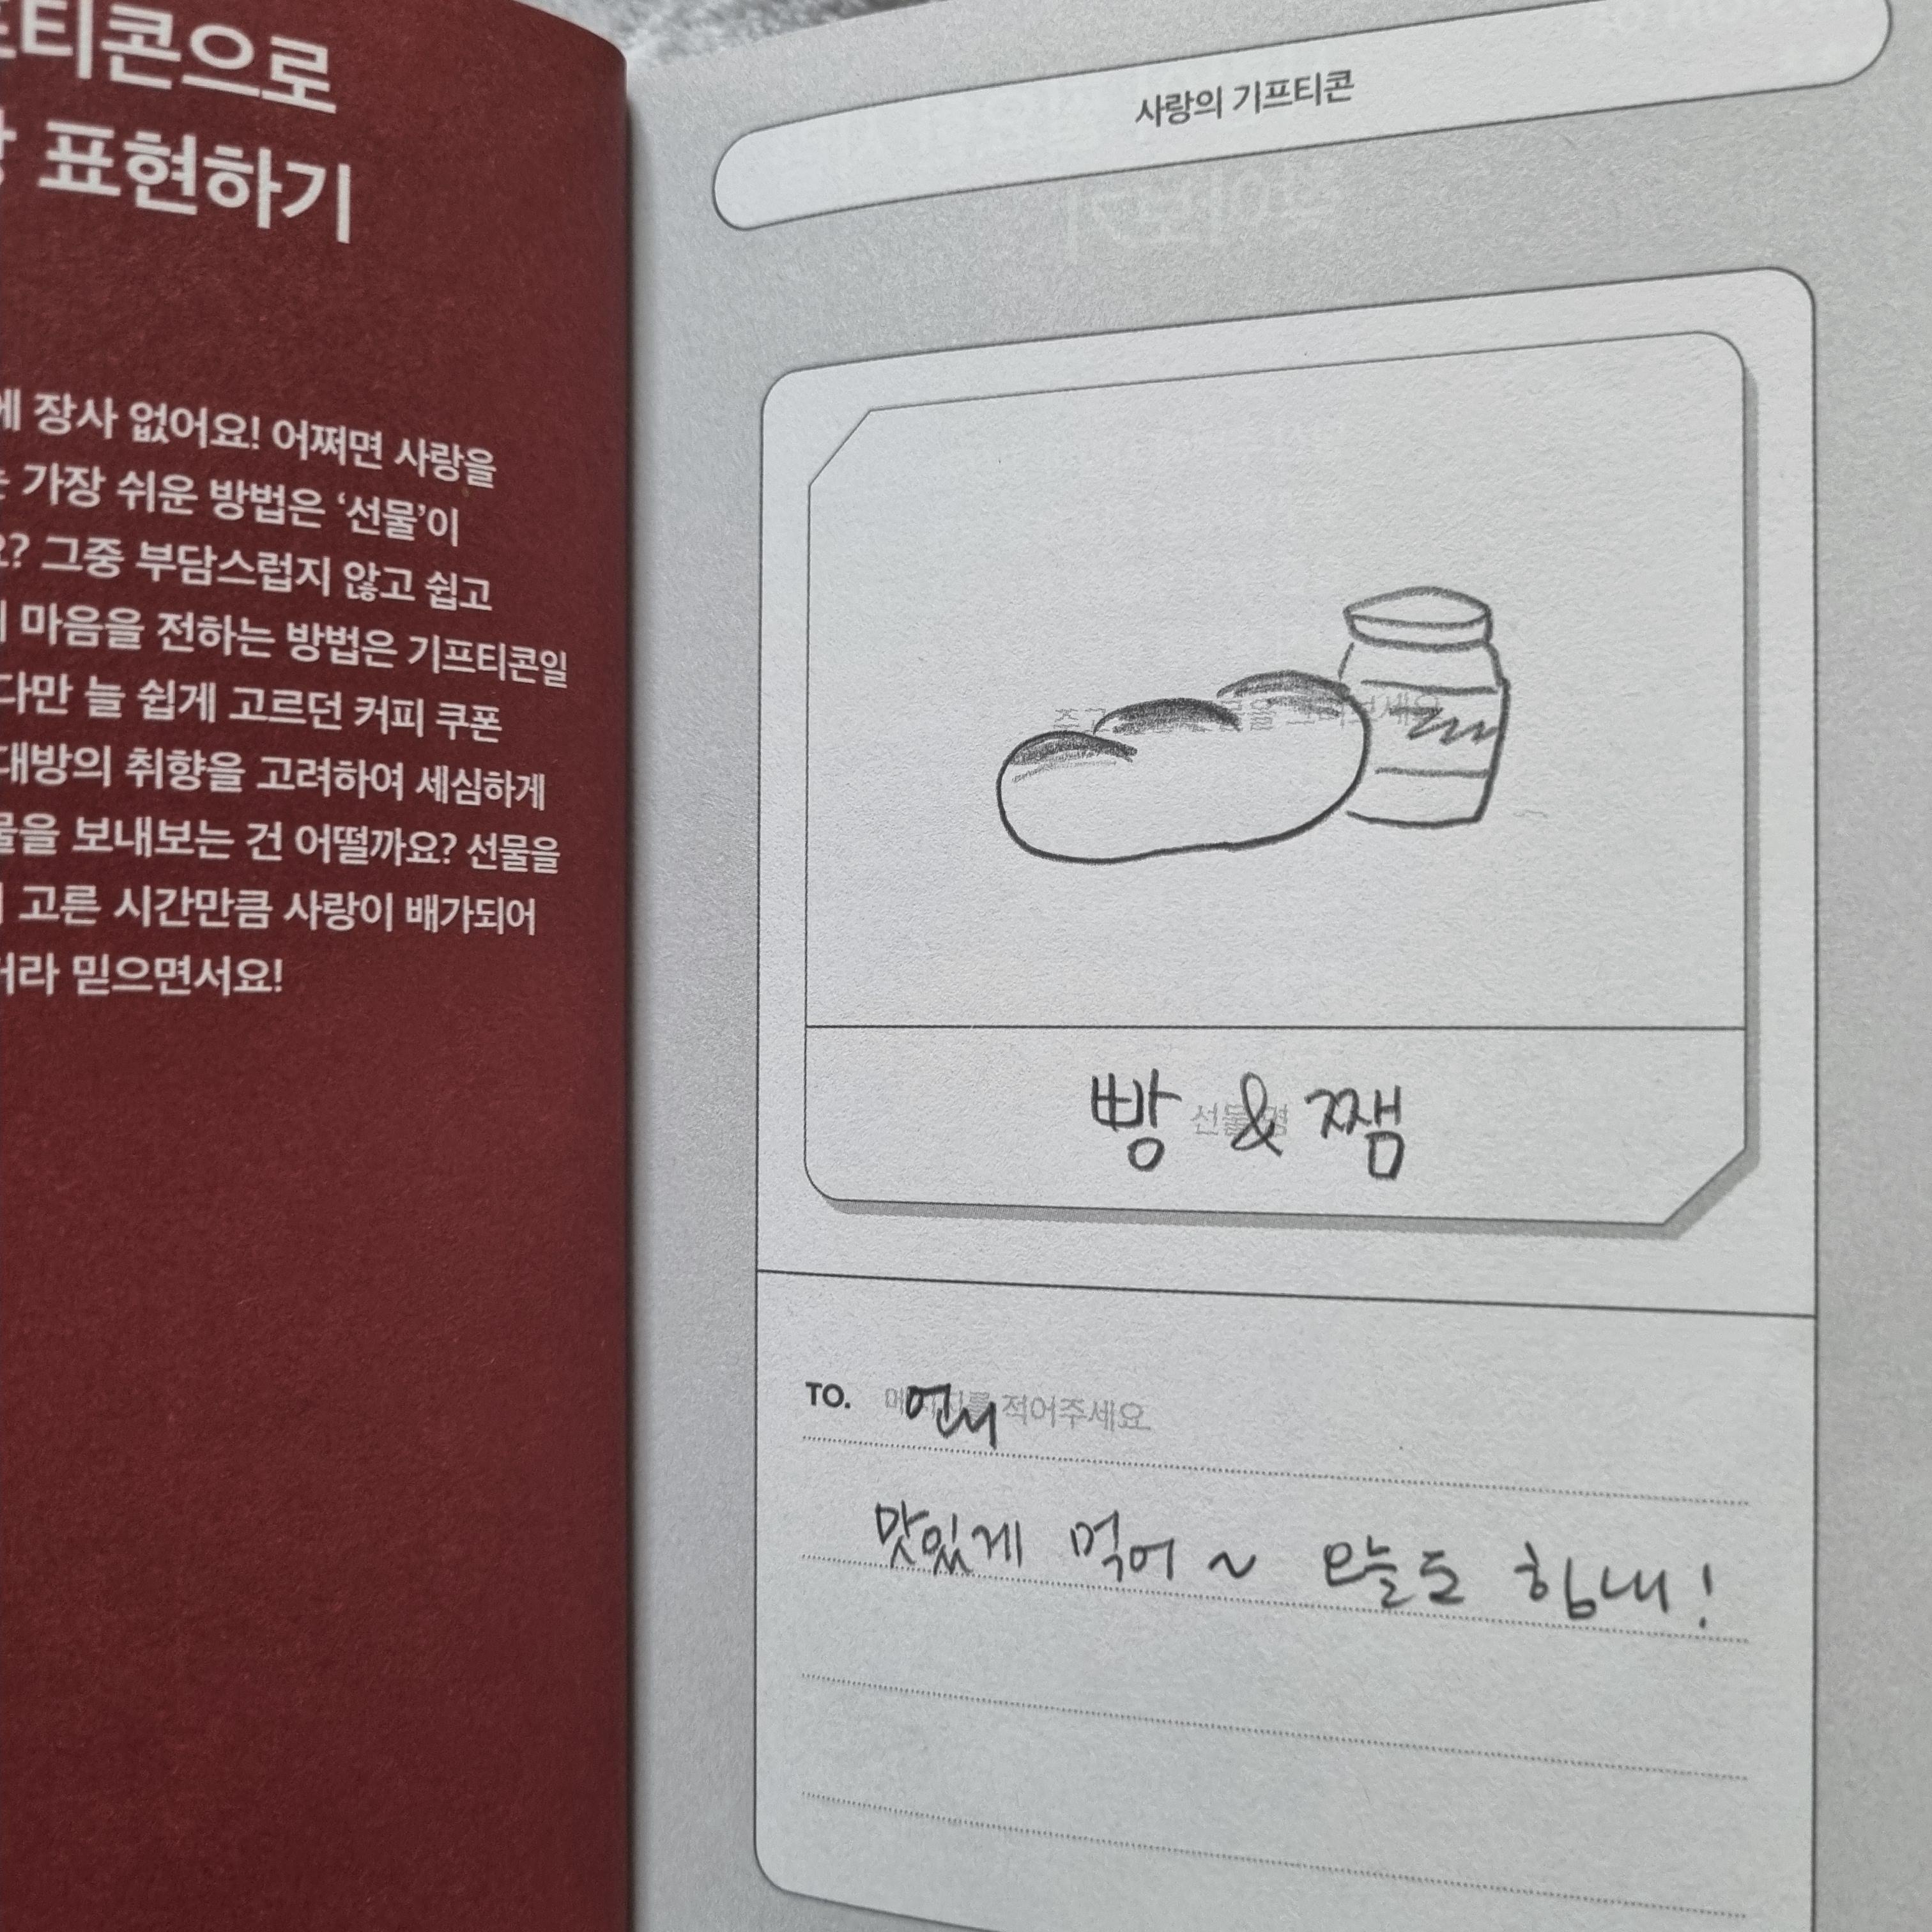 티콘으로
표현하기
에 장사 없어요! 어쩌면 사랑을
가장 쉬운 방법은 ‘선물’이
요? 그중 부담스럽지 않고 쉽고
마음을 전하는 방법은 기프티콘일
다만 늘 쉽게 고르던 커피 쿠폰
대방의 취향을 고려하여 세심하게
물을 보내보는 건 어떨까요? 선물을
고른 시간만큼 사랑이 배가되어
거라 믿으면서요!
사랑의 기프티콘
빵 & 쨈
선물명
TO. 언니
메시지를 적어주세요
맛있게 먹어 ~ 오늘도 힘내!